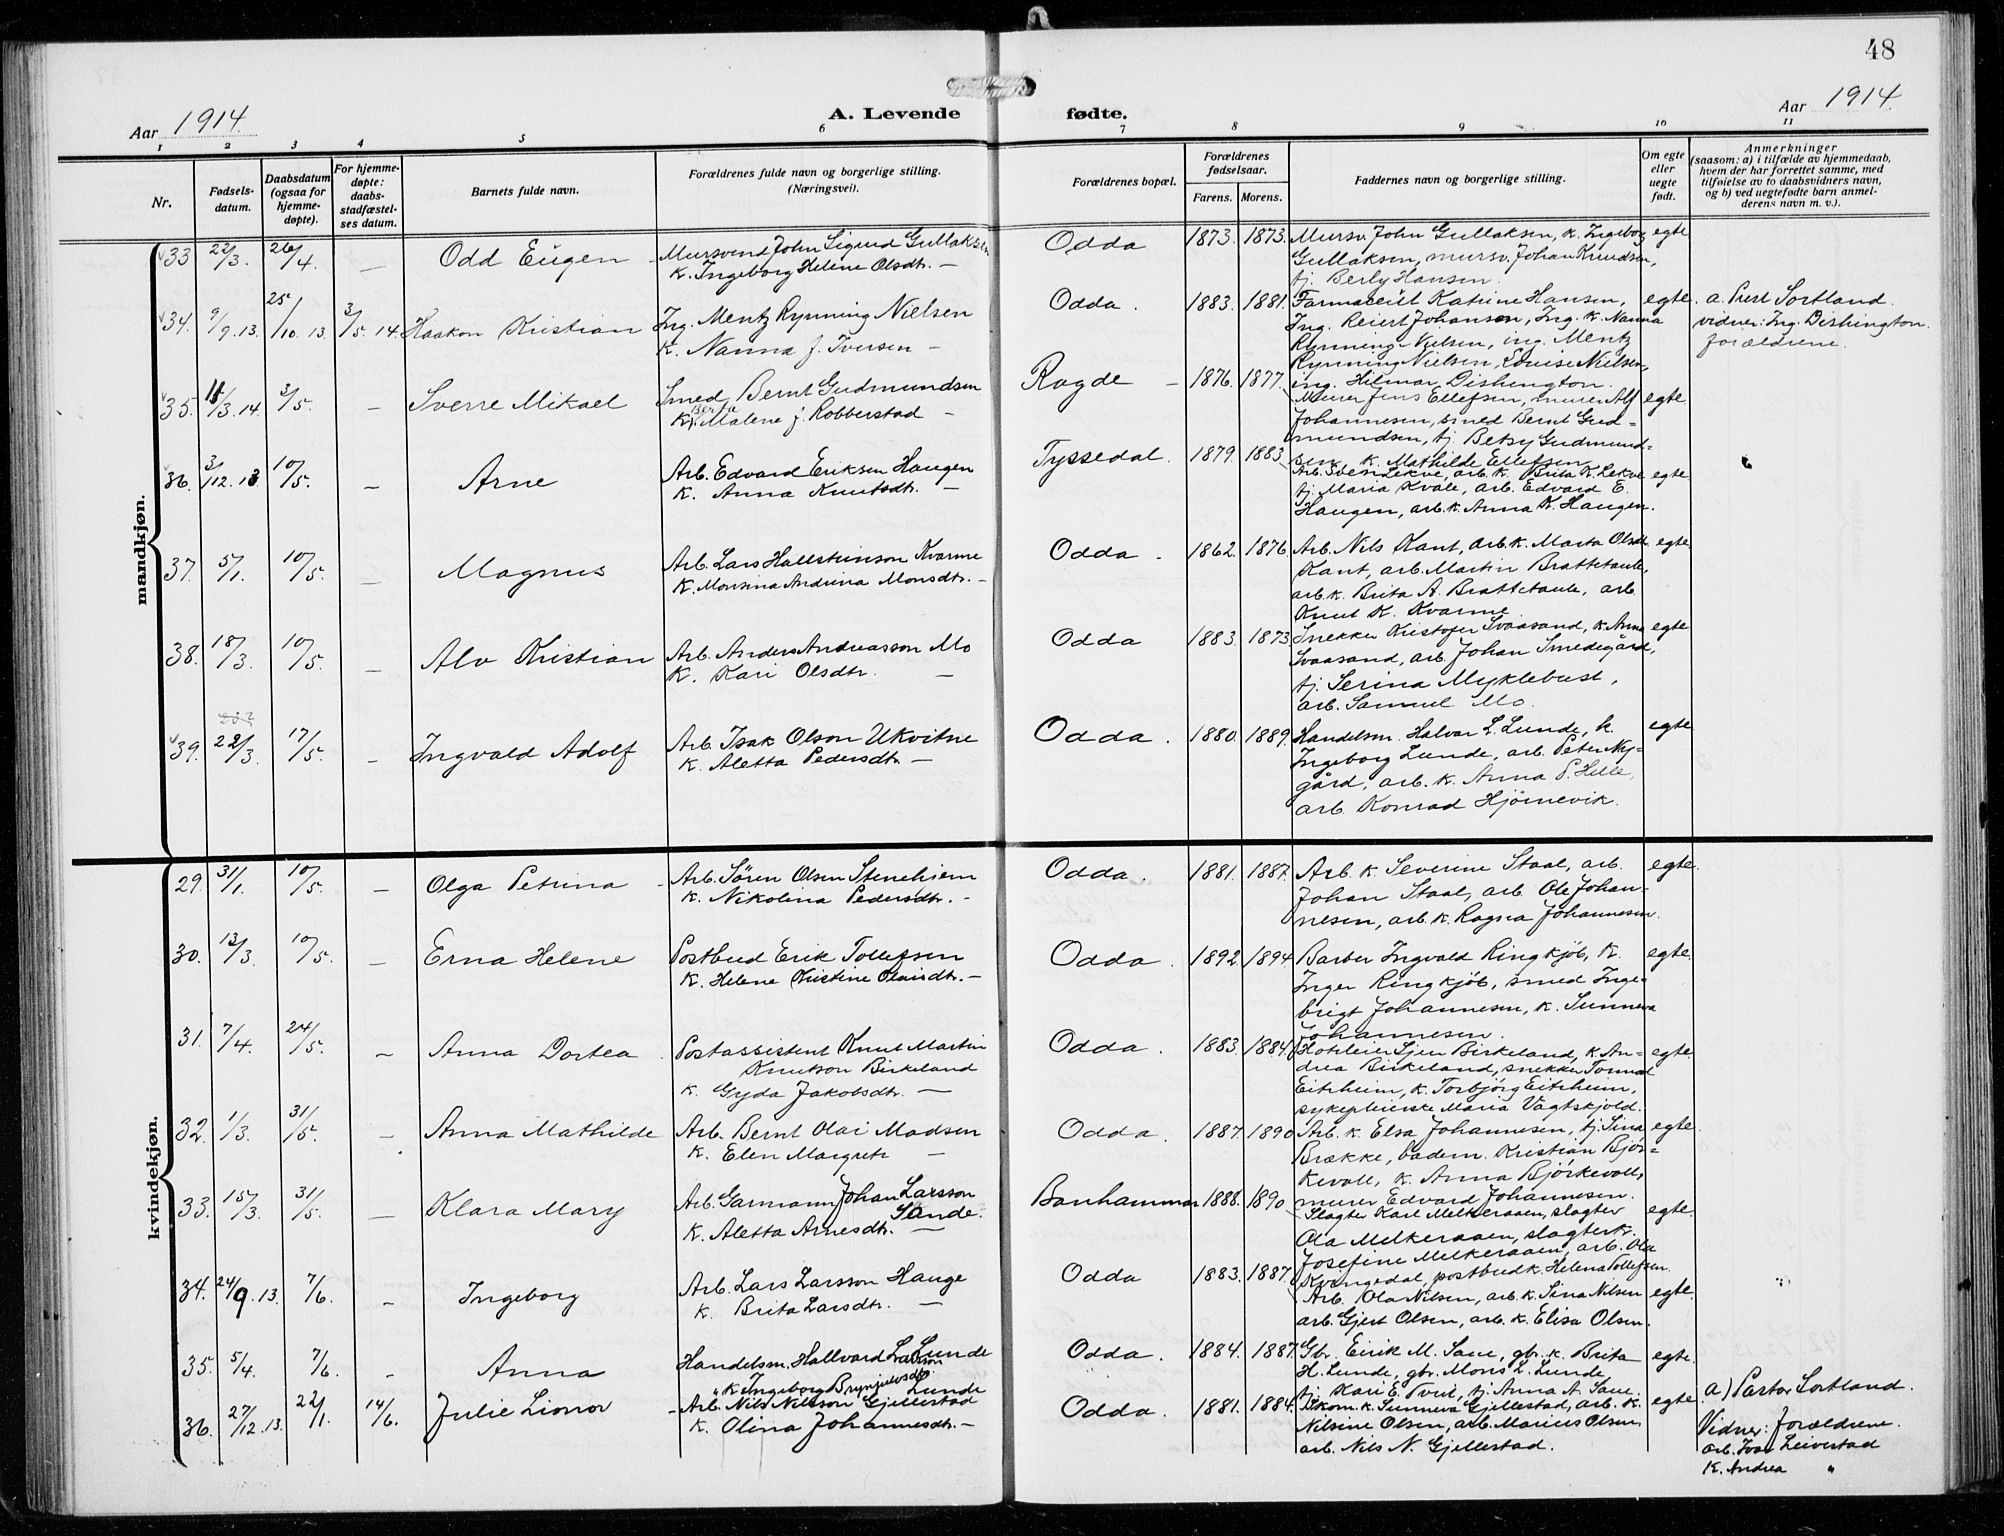 48
Aar 1914. A. Levende fødte. Aar 1914.
1 2 3 4 5 6 7 8 9 10 11
Nr. Fødsels-datum. Daabsdatum (ogsaa for hjemme-døpte). For hjemme-døpte: daabs-stadfæstel-ses datum. Barnets fulde navn. Forældrenes fulde navn og borgerlige stilling. (Næringsvei). Forældrenes bopæl. Forældrenes fødselsaar. Farens. Morens. Faddernes navn og borgerlige stilling. Om egte eller uegte født. Anmerkninger (saasom: a) i tilfælde av hjemmedaab, hvem der har forrettet samme, med tilføielse av to daabsvidners navn, og b) ved uegtefødte barn anmel-derens navn m. v.).
mandkjøn.
33 22/3. 26/4. — Odd Eugen - Mursvend John Sigurd Gullaksen Odda 1873. 1873. Mursv. John Gullaksen, k. Ingeborg egte
k. Ingeborg Helene Olsdtr. — Gullaksen, mursv. Johan Knudsen,
tj. Berly Hansen.
34. 9/9.13. 25/10.13. 3/5.14. Haakon Kristian Ing. Mentz Rynning Nielsen Odda. 1883. 1881. Farmaceut Katrine Hansen, egte. a. Prest Sortland.
k. Nanna f. Iversen — Ing. Reiert Johansen, Ing. k. Nanna vidner: Ing. Dishington.
Rynning-Nielsen, ing. Mentz forældrene.
Rynning Nielsen, Louise Nielsen,
ing. Hilmar Dishington.
35. 11/3.14. 3/5. — Sverre Mikael Smed Bernt Gudmundsen Ragde — 1876. 1877. Murer Jens Ellefsen, murer Alf egte.
k. Berta Malene f. Robberstad — Johannesen, smed Bernt Gud-
mundsen, tj. Betsy Gudmund-
sen k. Mathilde Ellefsen
36. 3/12.13 10/5. — Arne Arb. Edvard Eriksen Haugen Tyssedal. 1879. 1883. Arb. Sven Lekve, arb. k. Brita K. Lekve egte
k. Anna Knutsdtr. — tj. Maria Kvale, arb. Edvard E.
Haugen, arb. k. Anna K. Haugen.
37. 5/1. 10/5. — Magnus Arb. Lars Hallsteinson Kvarme Odda. 1862. 1876. Arb. Nils Kant, arb. k. Marta Olsdtr. egte
k. Monsina Andrina Monsdtr. — Kant, arb. Martin Brattetaule,
arb. k. Brita A. Brattetaule, arb.
Knut K. Kvarme.
38. 18/3. 10/5. — Alv Kristian Arb. Anders Andreasson Mo Odda 1883. 1873. Snekker Kristofer Svaasand, k. Anna egte
k. Kari Olsdtr. — Svaasand, arb. Johan Smedegård,
tj. Serina Myklebust,
arb. Samuel Mo.
39. 22/3. 17/5. — Ingvald Adolf Arb. Isak Olson Ukvitne Odda. 1880. 1889. Handelsm. Halvar L. Lunde, k. egte
k. Aletta Pedersdtr. — Ingeborg Lunde, arb. Peter Ny-
gård, arb. k. Anna P. Helle,
arb. Konrad Hjørnevik.
kvindekjøn.
29. 31/1. 10/5. — Olga Petrina - Arb. Søren Olsen Stenehiem Odda. 1881. 1887. Arb. k. Severine Staal, arb. egte.
k. Nikolina Pedersdtr. — Johan Staal, arb. Ole Johan-
nesen, arb. k. Ragna Johannesen.
30. 13/3. 10/5. — Erna Helene Postbud Erik Tollefsen Odda. 1892. 1894. Barber Ingvald Ringkjøb, k. egte.
k. Helene Kristine Olaisdtr. — Inger Ringkjøb, smed Inge-
brigt Johannesen, k. Sunneva
Johannesen.
31. 7/4. 24/5. — Anna Dortea. Postassistent Knut Martin Odda. 1883. 1884. Hoteleier Sjen Birkeland, k. An- egte.
Knutson Birkeland drea Birkeland, snekker Tormod
k. Gyda Jakobsdtr. — Eitrheim, k. Torbjørg Eitrheim,
sykepleierske Maria Vagtskjold.
32. 1/3. 31/5. — Anna Mathilde Arb. Bernt Olai Madsen Odda. 1887. 1890 Arb. k. Elsa Johannesen, tj. Sina egte.
k. Elen Margretr — Brække, badem. Kristian Bjør-
kevoll, k. Anna Bjørkevoll,
murer Edvard Johannesen.
33. 15/3. 31/5. — Klara Mary Arb. Garmann Johan Larsson Sande. Banhammar 1888. 1890 Slagter Karl Melkeraaen, slagter egte.
k. Aletta Arnesdtr. — Ola Melkeraaen, slagterk.
Josefine Melkeraaen, arb. Ola
Kvingedal, postbud k. Helena Tollefsen.
34. 24/9.13. 7/6. — Ingeborg Arb. Lars Larsson Hauge Odda 1883. 1887. Arb. Ola Nilsen, arb. k. Sina Nilsen egte.
k. Brita Larsdtr. — arb. Gjert Olsen, arb. k. Elisa Olsen.
35. 5/4. 7/6. — Anna Handelsm. Hallvard Larsson Lunde Odda. 1884. 1887. Gbr. Eirik M. Sæue, gbr. k. Brita egte.
k. Ingeborg Brynjulvsdtr Lunde H. Lunde, gbr. Mons L. Lunde,
tj. Kari E. , tj. Anna A. Saue.
36. 27/12.13. 22/1. 14/6. Julie Lionor - Arb. Nils Nilsson Gjellestad Odda. 1881. 1884. k. Sunneva Gjellestad, arb. k. egte. a) Pastor Sortland.
k. Olina Johannesdtr. — Nilsine Olsen, arb. Marius Olsen, Vidner: forældrene.
arb. Nils N. Gjellestad. arb. Ivar Leivestad
k. Andrea "